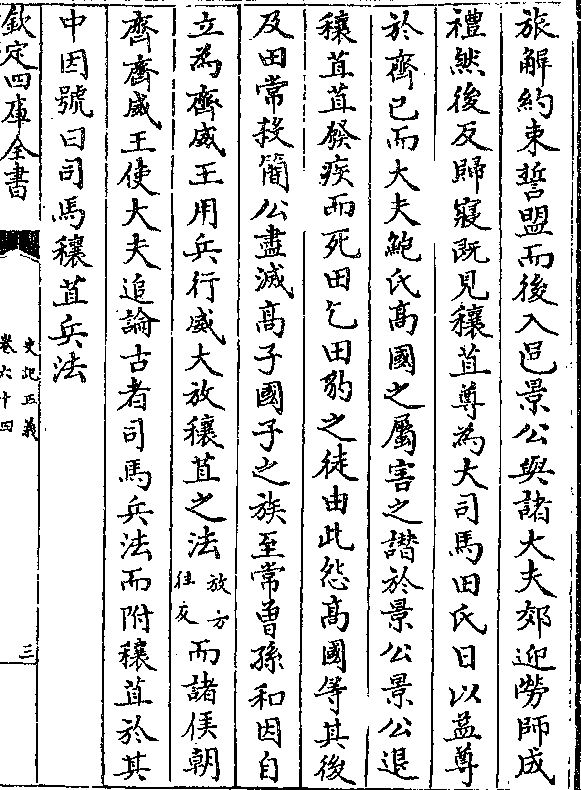 旅解約束誓盟而後入邑景公與諸大夫郊迎勞師成
禮然後反歸寢既見穰苴尊為大司馬田氏日以益尊
於齊已而大夫鮑氏髙國之屬害之譖於景公景公退
穰苴苴發疾而死田乞田豹之徒由此怨髙國等其後
及田常殺簡公盡滅髙子國子之族至常曾孫和因自
立為齊威王用兵行威大放穰苴之法放方往反而諸侯朝
齊齊威王使大夫追論古者司馬兵法而附穰苴於其
中因號曰司馬穰苴兵法
欽定四庫全書
史記正義
卷六十四
三